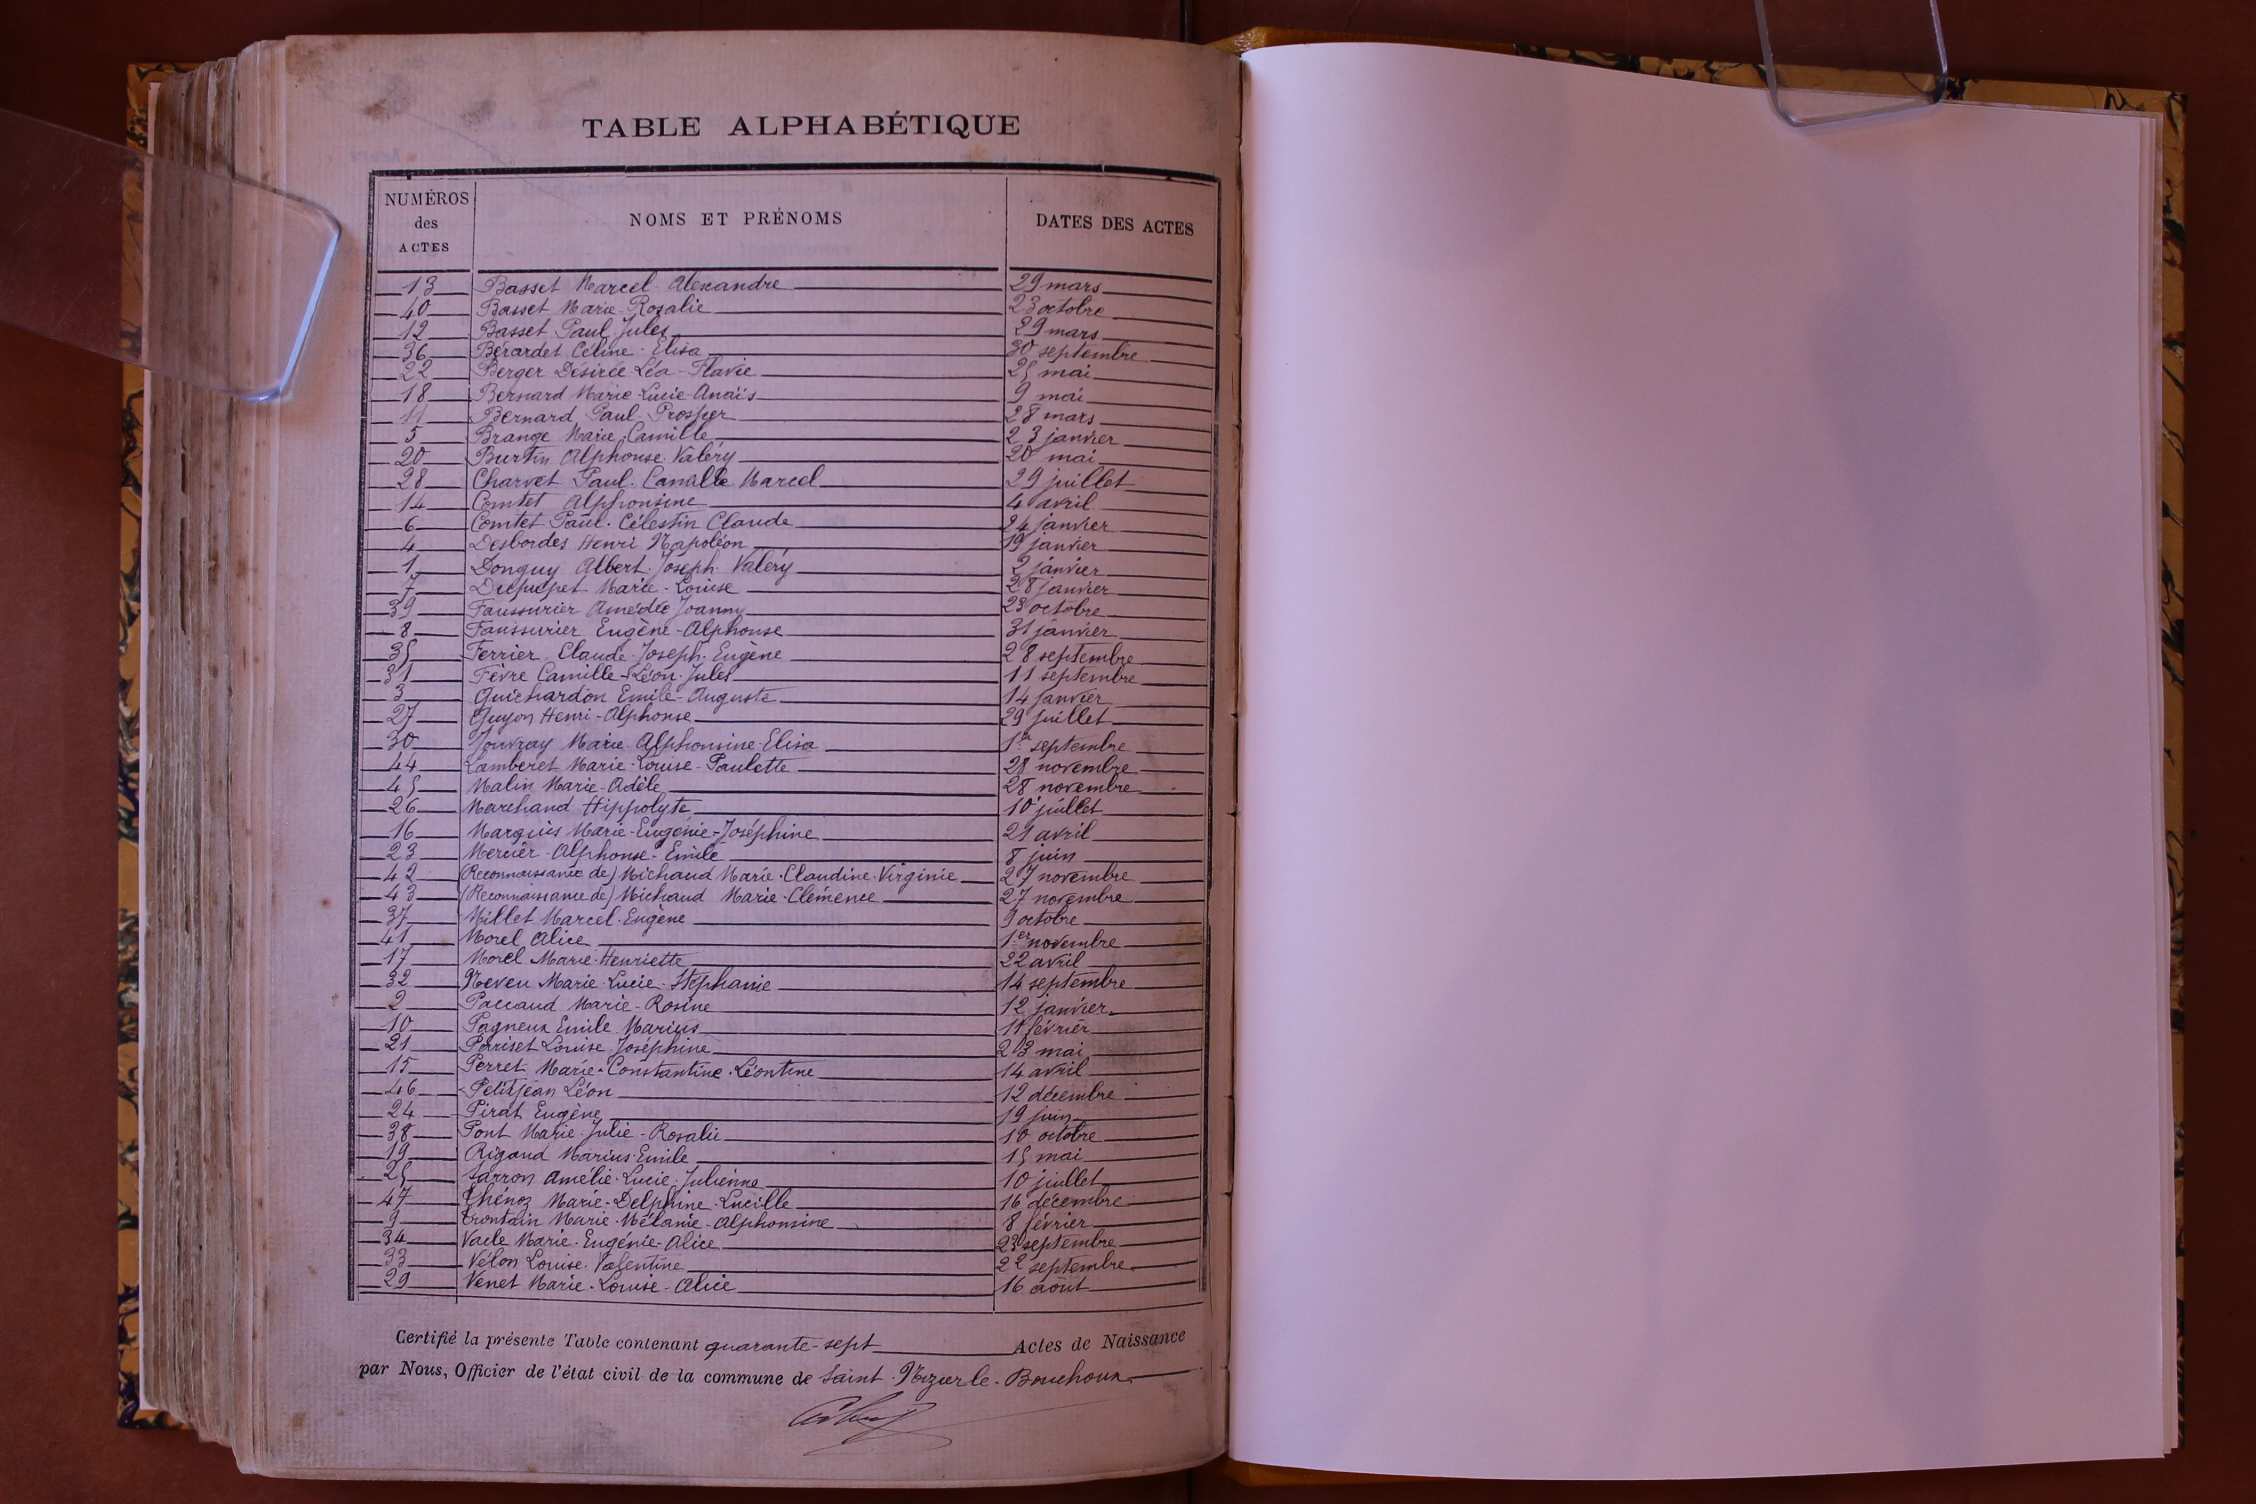 TABLE ALPHABÉTIQUE
NUMÉROS des ACTES NOMS ET PRÉNOMS DATES DES ACTES
13 Basset Marcel Alexandre 29 mars
40 Basset Marie-Rosalie 23 octobre
12 Basset Paul Jules 29 mars
36 Bérardet Céline-Elisa 30 septembre
22 Berger Désirée-Léa-Flavie 25 mai
18 Bernard Marie-Lucie-Anaïs 9 mai
11 Bernard Paul-Prosper 28 mars
5 Brange Marie-Camille 23 janvier
20 Burtin Alphonse-Valéry 20 mai
28 Charvet Paul-Camille Marcel 29 juillet
14 Comtet Alphonsine 4 avril
6 Comtet Paul-Célestin Claude 24 janvier
4 Desbordes Henri Napoléon 19 janvier
1 Donguy Albert-Joseph-Valéry 2 janvier
7 Dupupet Marie-Louise 28 janvier
39 Faussurier Amédée Joanny 23 octobre
8 Faussurier Eugène-Alphonse 31 janvier
35 Ferrier Claude-Joseph-Eugène 28 septembre
31 Fèvre Camille-Léon-Jules 11 septembre
3 Guichardon Emile-Auguste 14 janvier
27 Guyon Henri-Alphonse 29 juillet
30 Jouvray Marie-Alphonsine-Elisa 1er septembre
44 Lamberet Marie-Louise-Paulette 28 novembre
45 Malin Marie-Adèle 28 novembre
26 Marchand Hippolyte 10 juillet
16 Marquis Marie-Eugénie-Joséphine 21 avril
23 Mercier-Alphonse-Emile 8 juin
42 (Reconnaissance de) Michaud Marie-Claudine-Virginie 27 novembre
43 (Reconnaissance de) Michaud Marie-Clémence 27 novembre
37 Millet Marcel-Eugène 9 octobre
41 Morel Alice 1er novembre
17 Morel Marie-Henriette 22 avril
32 Neveu Marie-Lucie-Stéphanie 14 septembre
2 Paccaud Marie-Rosine 12 janvier
10 Pagneux Emile Marius 11 février
21 Perriset Louise Joséphine 23 mai
15 Perret Marie-Constantine-Léontine 14 avril
46 Petitjean Léon 12 décembre
24 Pirat Eugène 19 juin
38 Pont Marie-Julie-Rosalie 10 octobre
19 Rigaud Marius-Emile 15 mai
25 Sarron Amélie-Lucie-Julienne 10 juillet
47 Thénoz Marie-Delphine-Lucille 16 décembre
9 Trontain Marie-Mélanie-Alphonsine 8 février
34 Marie-Eugénie-Alice 23 septembre
33 Vélon Louise-Valentine 22 septembre
29 Venet Marie-Louise-Alice 16 août
Certifié la présente Table contenant quarante-sept Actes de Naissance
par Nous, Officier de l'état civil de la commune de Saint-Nizier-le-Bouchoux